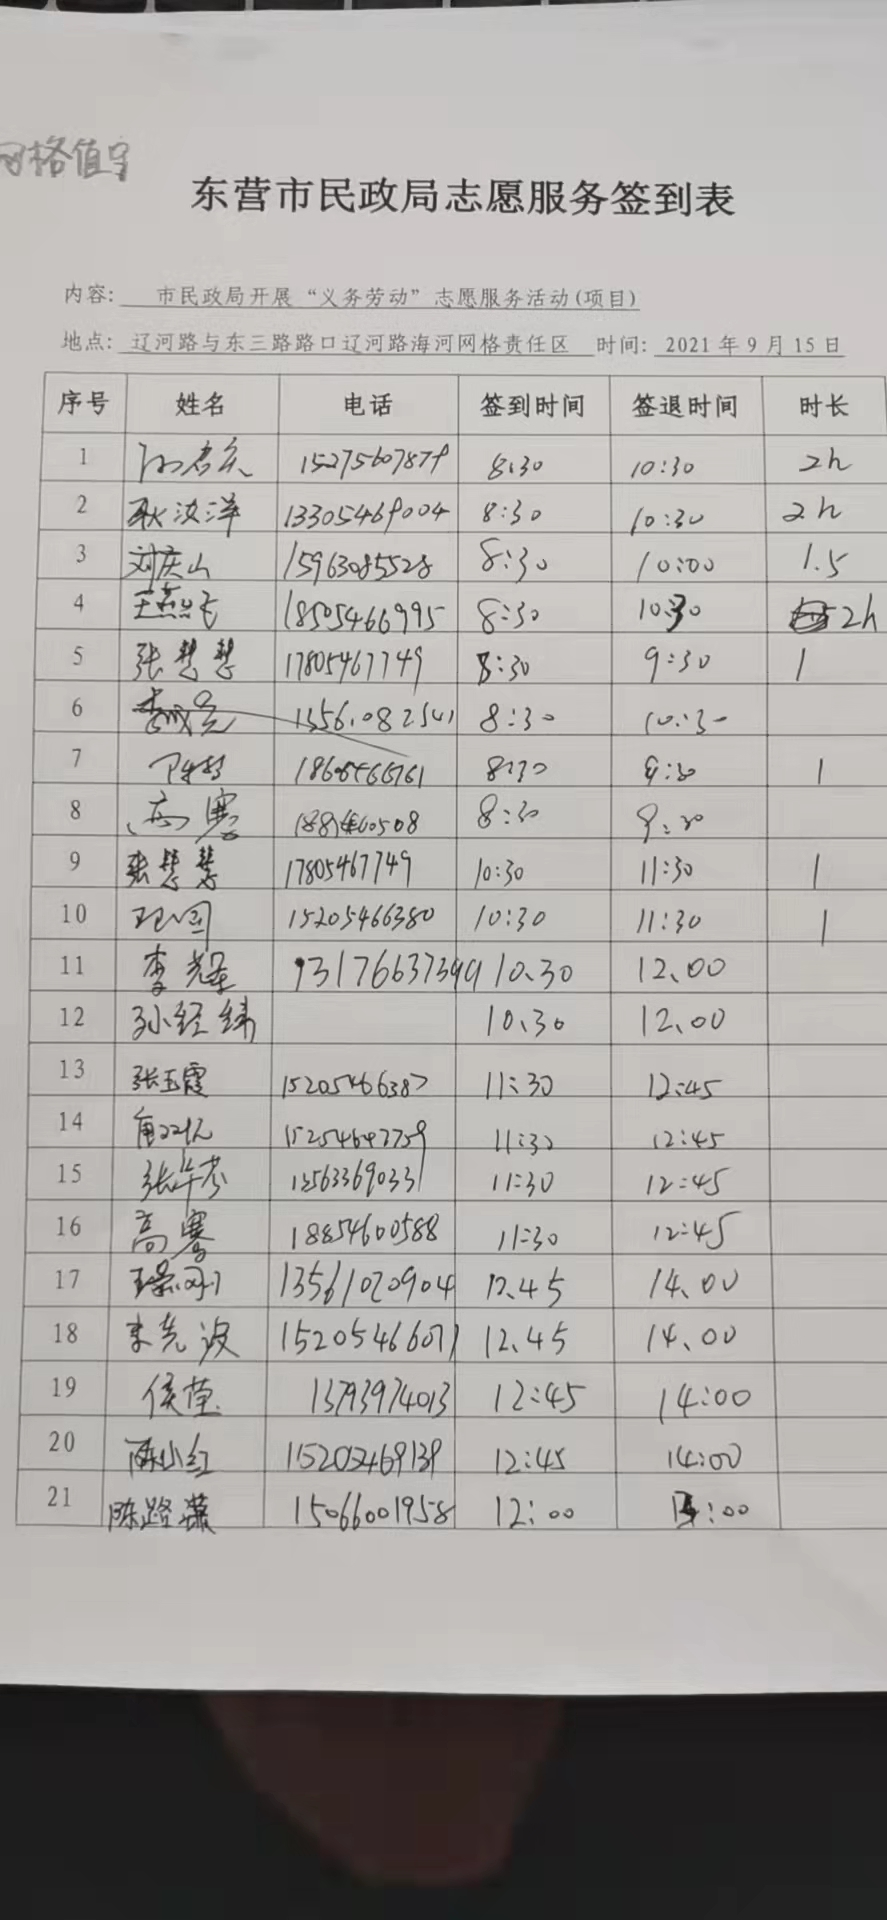 网格值守
东营市民政局志愿服务签到表
内容: 市民政局开展“义务劳动”志愿服务活动(项目)
地点: 辽河路与东三路路口辽河路海河网格责任区 时间: 2021年9月15日
序号 姓名 电话 签到时间 签退时间 时长
1 15275607879 8:30 10:30 2h
2 耿汝洋 13305469004 8:30 10:30 2h
3 刘庆山 15963085528 8:30 10:00 1.5
4 王燕飞 18505466995 8:30 10:30 2h
5 张慧慧 17805467749 8:30 9:30 1
6 13561082541 8:30 10:30
7 8:30 9:30 1
8 高骞 8:30 9:30
9 张慧慧 17805467749 10:30 11:30 1
10 15205466380 10:30 11:30 1
11 李光军 10.30 12.00
12 孙经纬 10.30 12.00
13 张玉霞 15205466387 11:30 12:45
14 11:30 12:45
15 张华芬 13563369033 11:30 12:45
16 高骞 18854600588 11:30 12:45
17 13561020904 12.45 14.00
18 宋先波 15205466071 12.45 14.00
19 侯莹 13793974013 12:45 14:00
20 陈小红 12:45 14:00
21 陈路潇 15066001958 12:00 :00